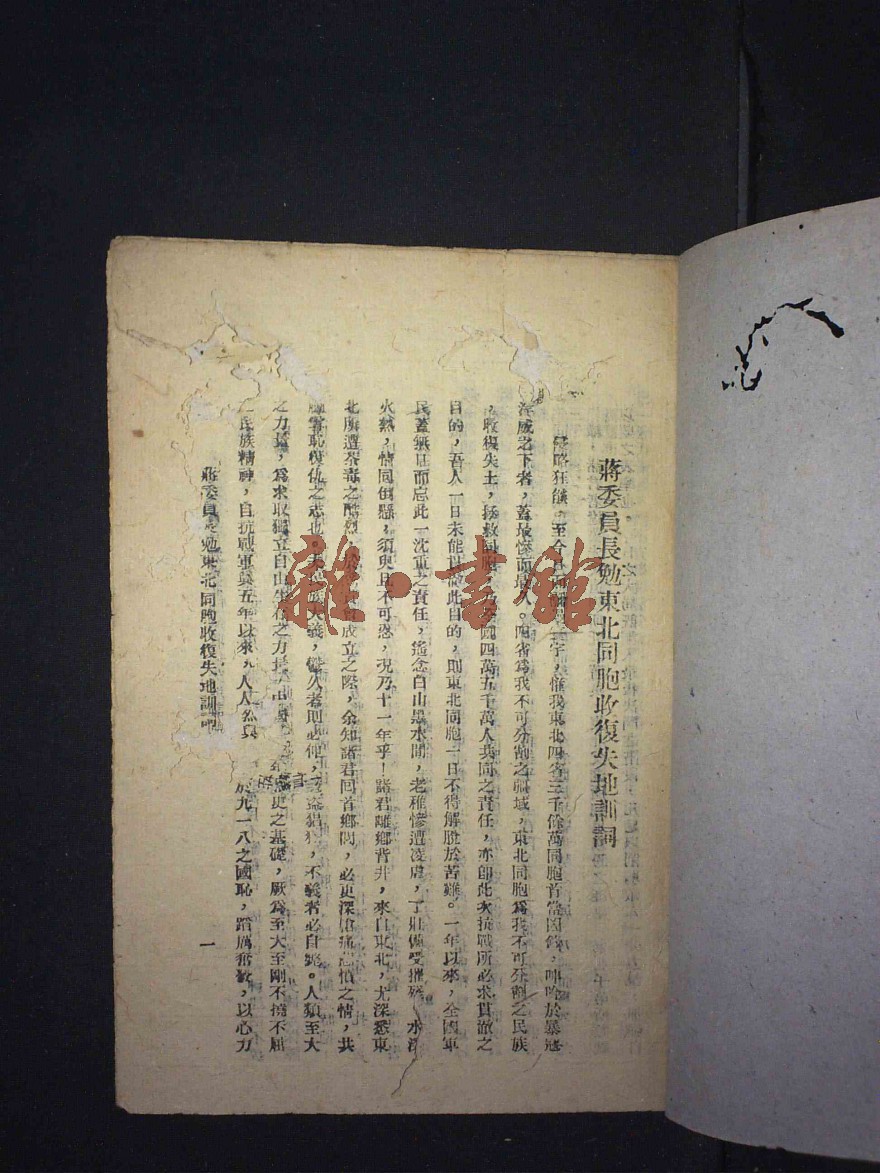 蔣委員長勉東北同胞收復失地訓詞
侵略狂燄,至今日而瀰宇,惟我東北四省三千餘萬同胞首當凶鋒,呻吟於暴寇
淫威之下者,蓋最慘而最久。四省爲我不可分割之疆域,東北同胞爲我不可分割之民族
,收復失土,拯救同胞,乃全國四萬五千萬人共同之責任,亦卽此次抗戰所必求貫徹之
目的,吾人一日未能此目的,則東北同胞一日不得解脫於苦難。一年以來,全國軍
民蓋無日而忘此一沈重之責任,遙念白山黑水間,老稚慘遭凌虐,丁壯備受摧殘,水深
火熱,情同倒懸,須臾且不可忍,況乃十一年乎!諸君離鄉背井,來自東北,尤深悉東
北所遭荼毒之酷烈,成立之際,余知諸君回首鄉閭,必更深愴痛之情,共
雪恥復仇之志也。夫民族大義,鬱久者則必伸,猖狂,不義者必自斃。人類至大
之力量,爲求取獨立自由生存之力量,史之基礎,厥爲至大至剛不撓不屈
民族精神,自抗戰軍興五年以來,人人
於九一八之國恥,踔厲奮發,以心力
蔣委員長勉東北同胞收復失地訓詞
一
雜·書館